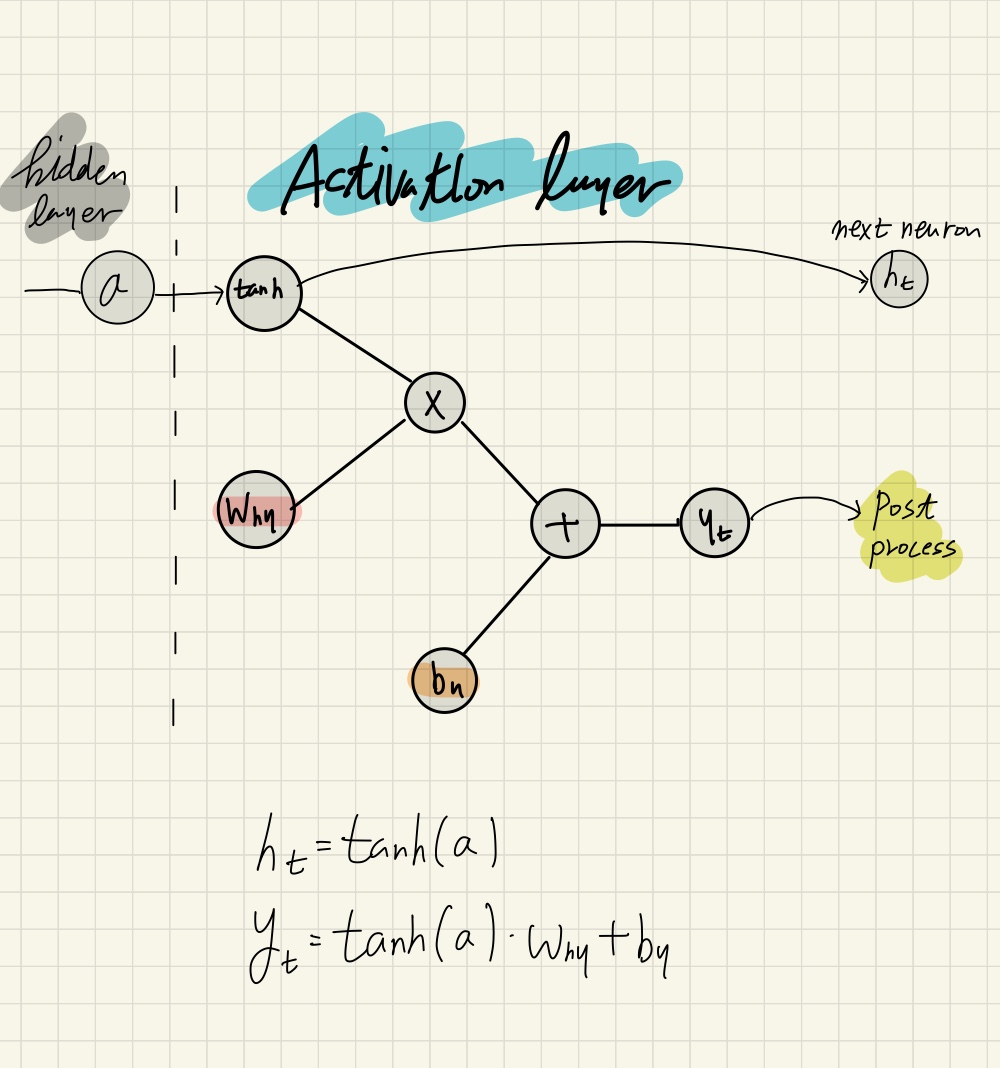 hidden
layer
Activation layer
next neuron
a
tanh
h_t
X
W_hy
+
y_t
Post
process
b_n
h_t = tanh(a)
y_t = tanh(a) · w_hy + b_y